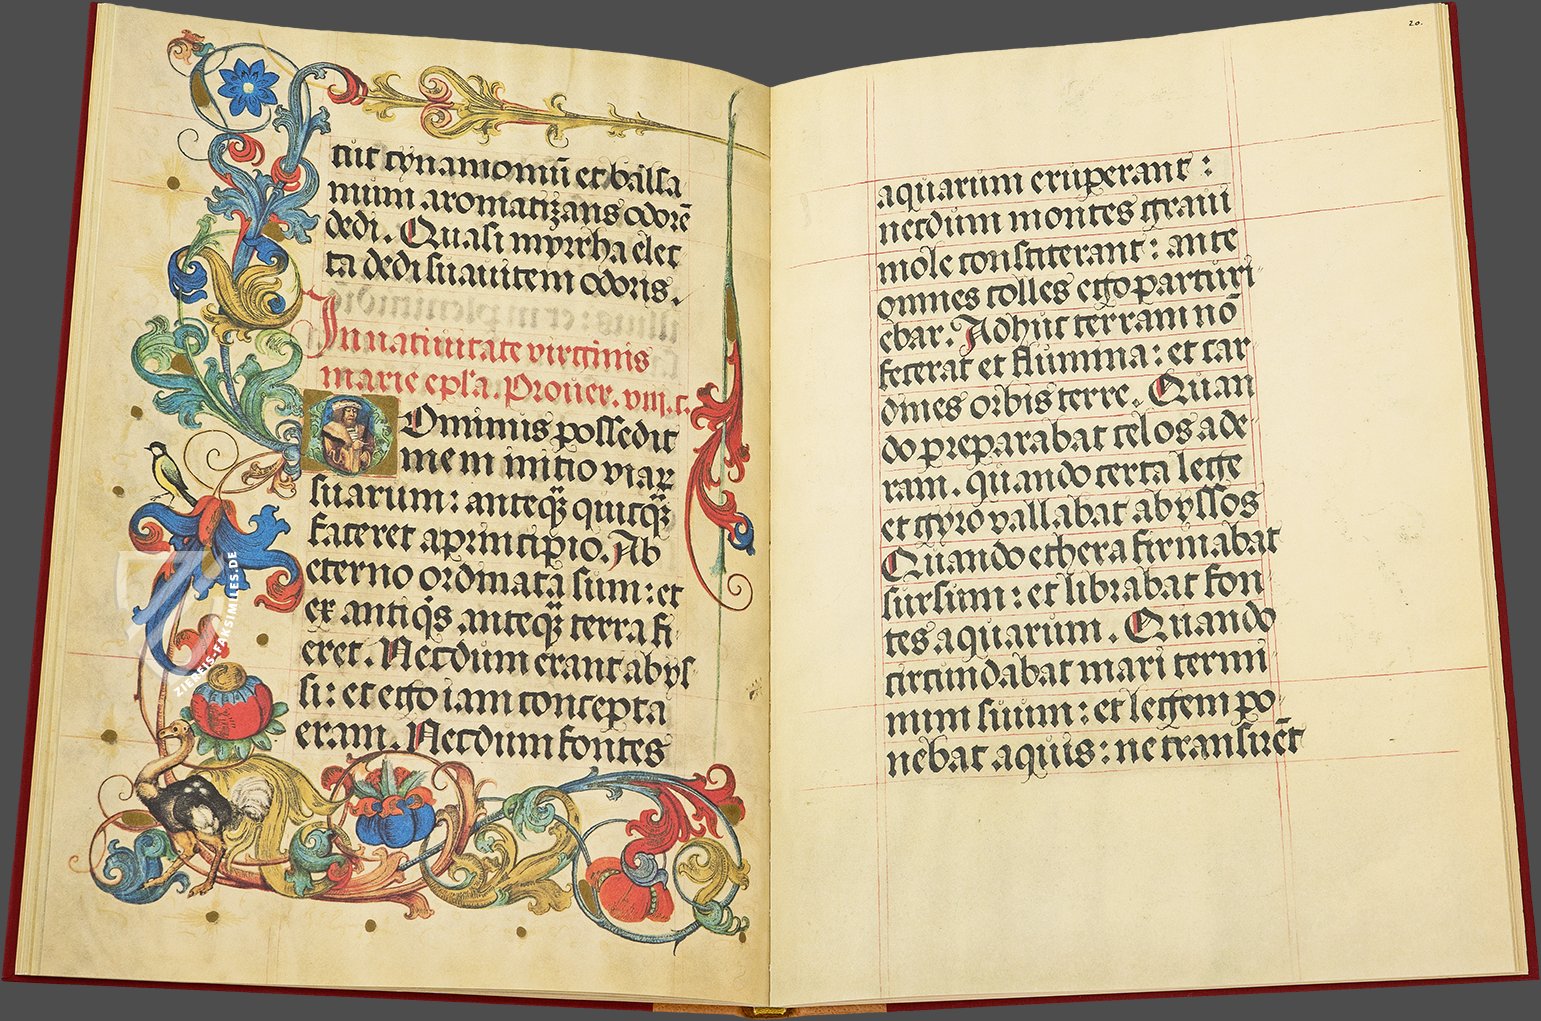 cut cynamomū et balsa
mum aromatizans odorē
dedi. Quasi myrrha elec
ta dedi suauitem odoris.
In natiuitate virginis
marie ep̄l̄a. Prouer. viii. c.
Dominus possedit
me in initio viaꝝ
suarum: anteq̄ꝫ quicq̄ꝫ
faceret a principio. Ab
eterno ordinata sum: et
ex antiq̇s anteq̄ꝫ terra fi
eret. Necdum erant abys
si: et ego iam concepta
eram. Necdum fontes
ZIEREIS-FAKSIMILES.DE
20.
aquarum eruperant:
necdum montes graui
mole constiterant: ante
omnes colles ego parturi
ebar. Adhuc terram nō
fecerat et flumina: et car
dines orbis terre. Quan
do preparabat celos ade
ram. quando certa lege
et gyro vallabat abyssos
Quando ethera firmabat
sursum: et librabat fon
tes aquarum. Quando
circundabat mari termi
num suum: et legem po
nebat aquis: ne transirēt